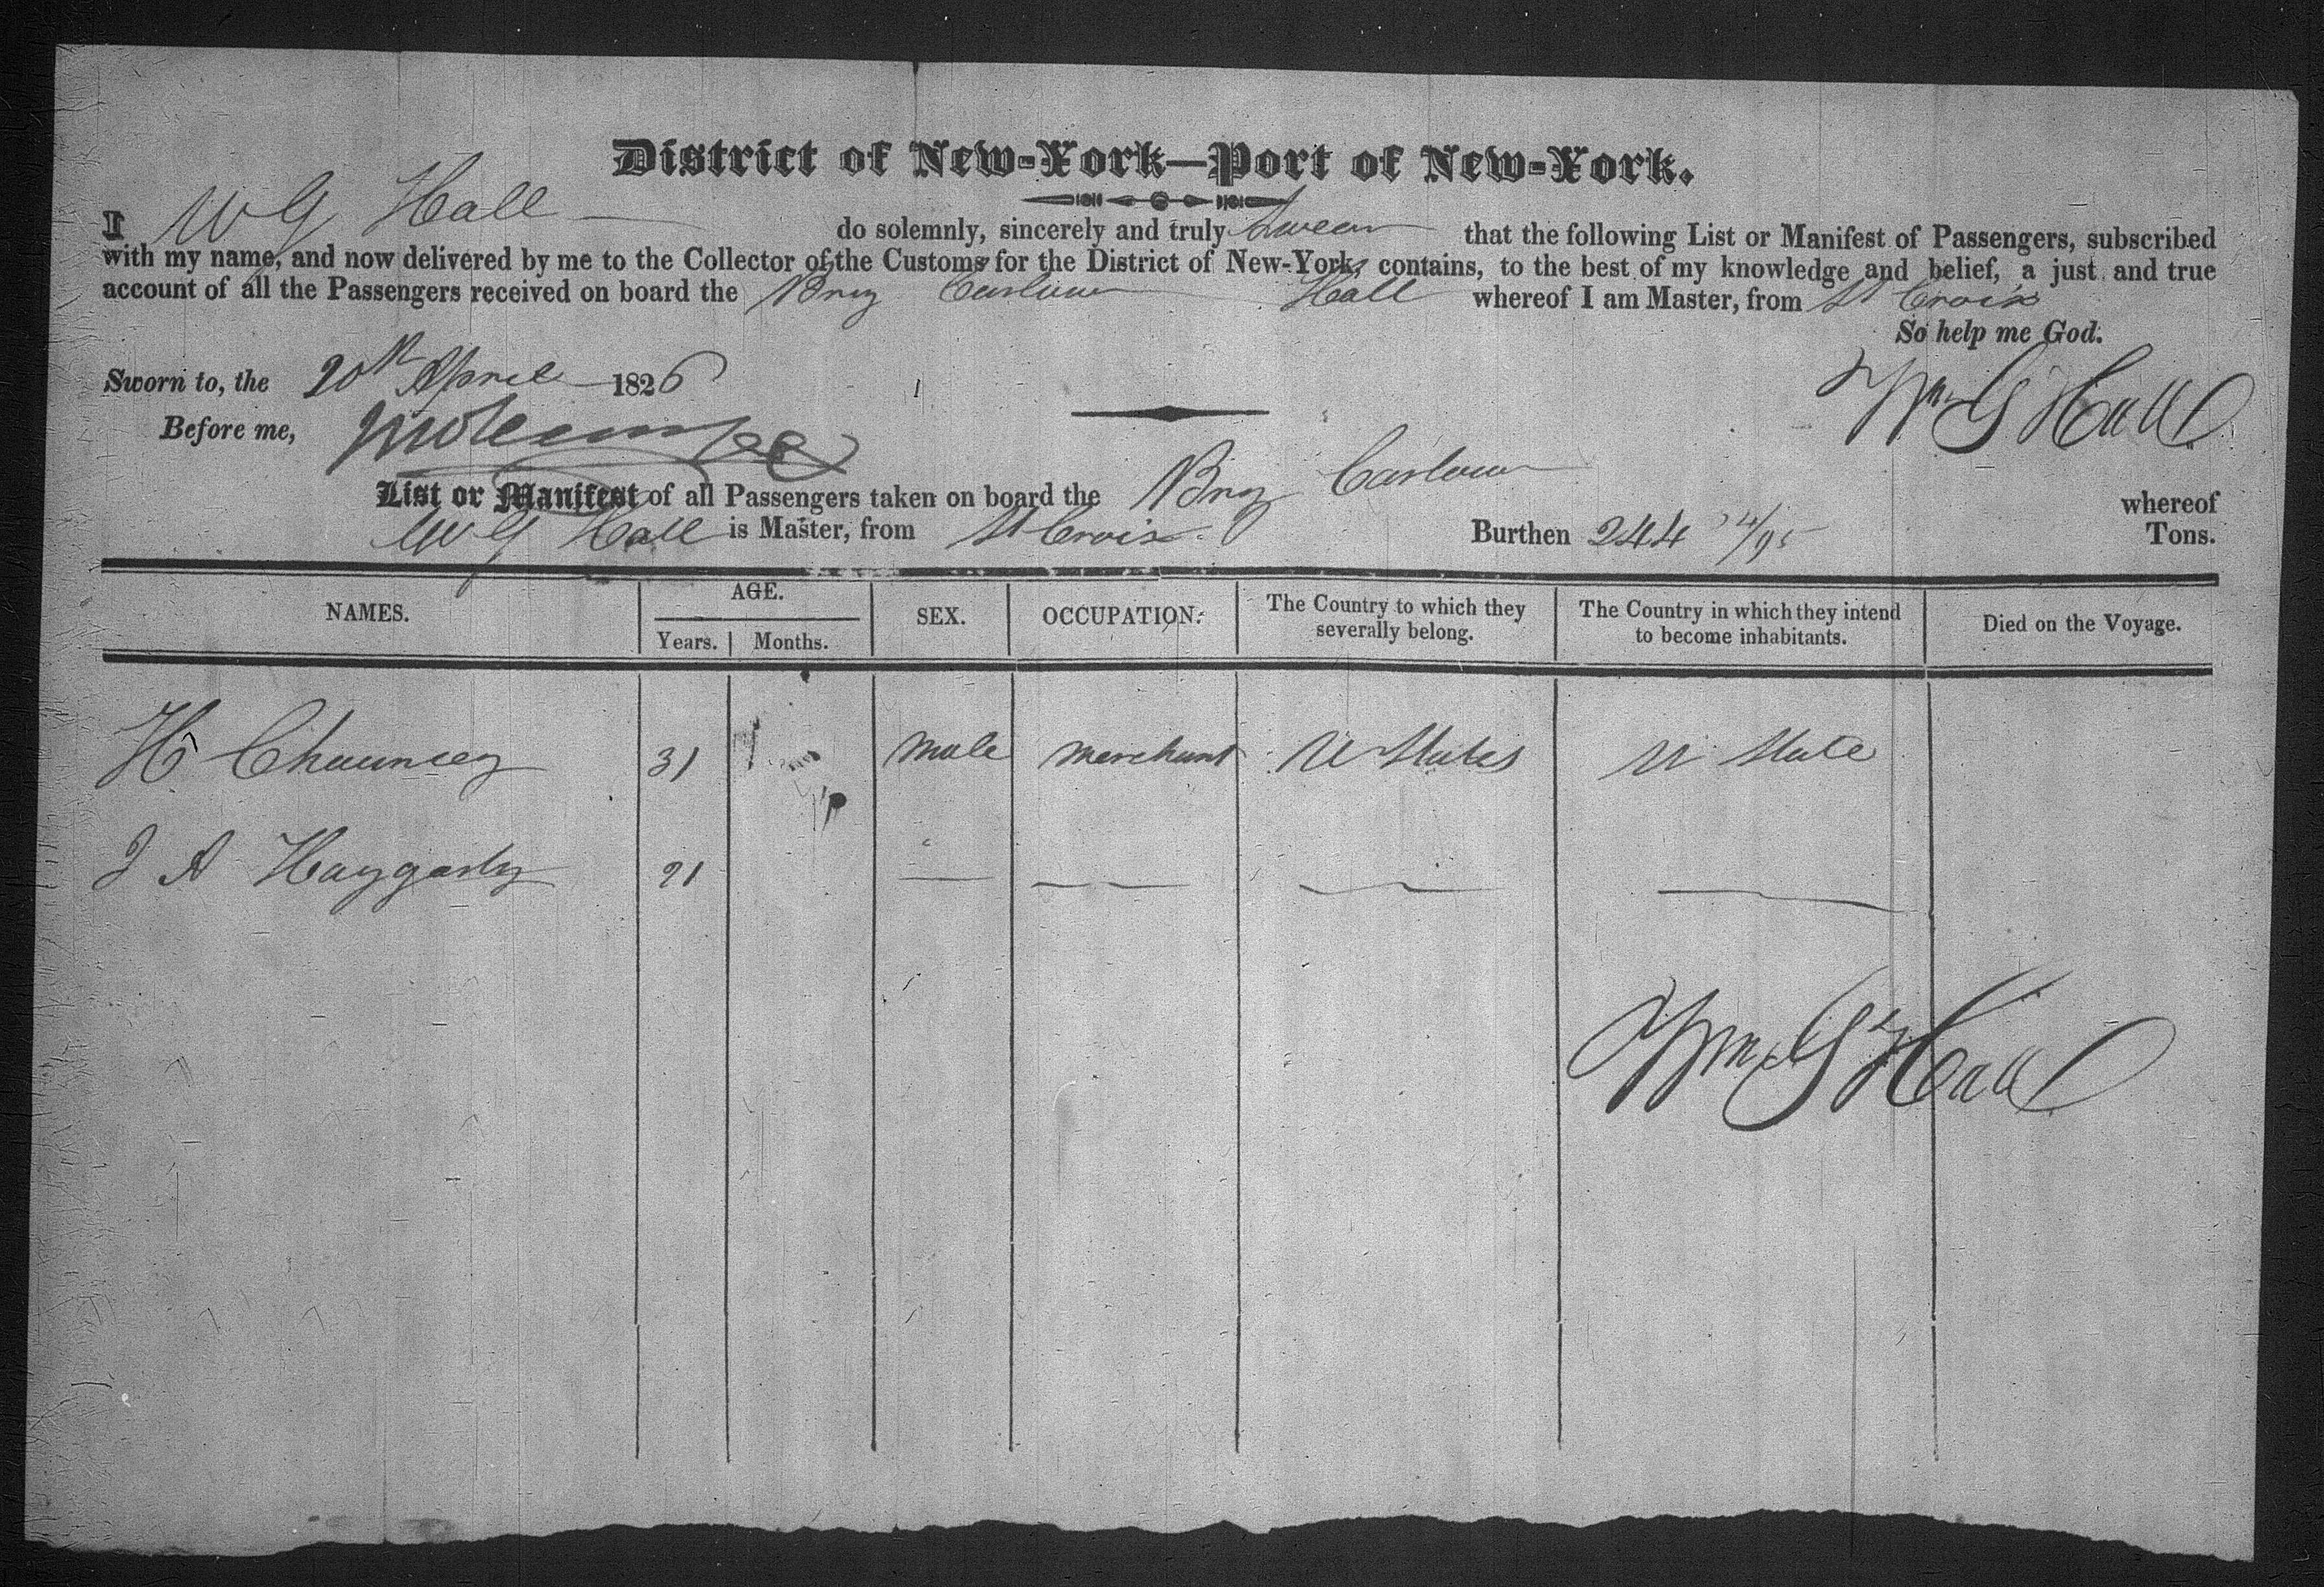 District of New-York—Port of New-York.
I W G Hall do solemnly, sincerely and truly Swear that the following List or Manifest of Passengers, subscribed
with my name, and now delivered by me to the Collector of the Customs for the District of New-York, contains, to the best of my knowledge and belief, a just and true
account of all the Passengers received on board the Brig Hall whereof I am Master, from St Croix
So help me God.
Sworn to, the 20th April 1826
Wm G Hall
Before me,
List or Manifest of all Passengers taken on board the Brig whereof
W G Hall is Master, from St Croix. Burthen 244 /95 Tons.
NAMES. AGE. SEX. OCCUPATION. The Country to which they severally belong. The Country in which they intend to become inhabitants. Died on the Voyage.
Years. Months.
H Chauncey 31 Male Merchant U States U State
J A 21
Wm G Hall